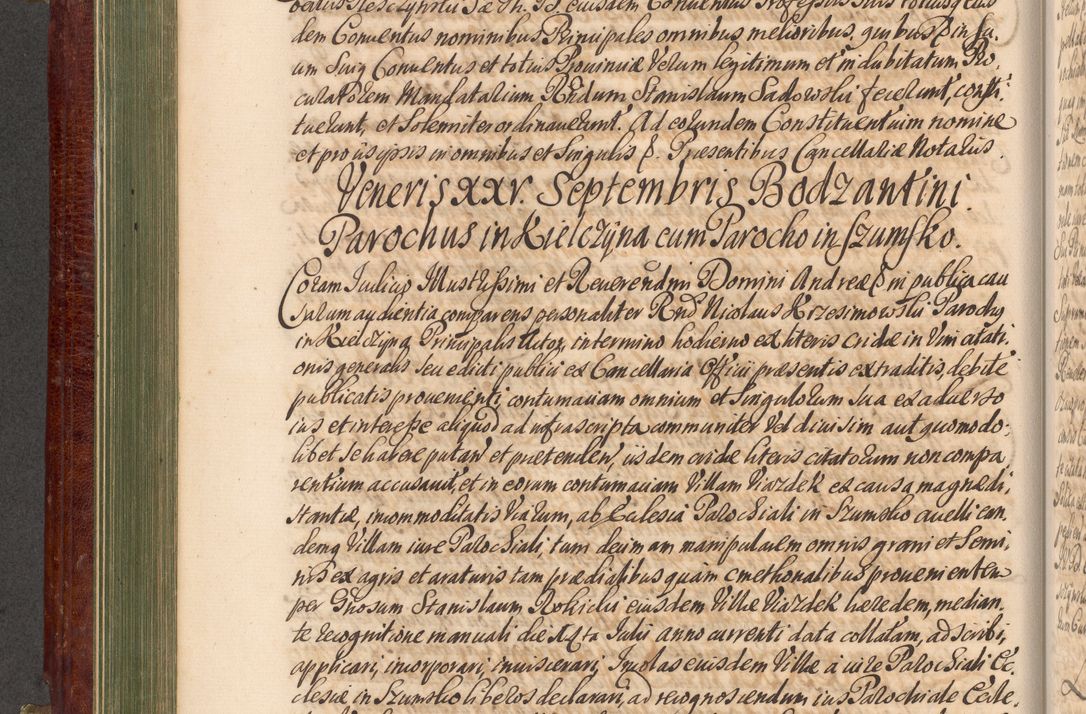 dem Conventus nominibus Principales omnibus melioribus, quibus ß in su,
um Suiq Conventus et totius Provinciæ Verum legitimum et indubitatum Pro,
curatorem Mandatarium Rndum Stanislaum Sadowski fecerunt, consti,
tuerunt, et Solemniter ordinaverunt. Ad eorundem Constituentium nomine
et pro iis ipsis in omnibus et Singulis ß. Præsentibus Cancellariæ Notarius.
Veneris XXV. Septembris Bodzantini.
Parochus in Kielczyna cum Parocho in Szumsko.
Coram Iudicio Illustrissimi et Reverendmi Domini Andreæ ß in publica cau
sarum audientia comparens personaliter Rnd Nicolaus Krzesimowski Parochq
in Kielczyna Principalis Actor, in termino hodierno ex literis cridæ in Vim citati,
onis generalis seu edicti publici ex Cancellaria Officii præsentis extraditis, debite
publicatis provenienti, contumaciam omnium et Singulorum Sua ex adverso
ius et interesse aliquod ad infrascripta communiter Vel divisim aut quomodo,
libet se habere putan et prætenden, iisdem cridæ literis citatorum non compa
rentium accusavit, et in eorum contumaciam Villam Viazdek ex causa magnæ di,
stantiæ, incommoditatis Viarum, ab Ecclesia Parochiali in Szumsko avelli ean,
demq Villam iure Parochiali, tum decimam manipularem omnis grani et Semi,
nis ex agris et araturis tam prædialibus quam cmethonalibus provenientem
per Gnosum Stanislaum Rokicki eiusdem Villæ Viazdek hæredem, median,
te recognitione manuali die 4ta Iulii anno currenti data collatam, adscribi,
applicari, incorporari, inviscerari, Incolas eiusdem Villæ a iure Parochiali Ec,
clesiæ in Szumsko liberos declarari, ad recognoscendum ius Parochiale Eccle,